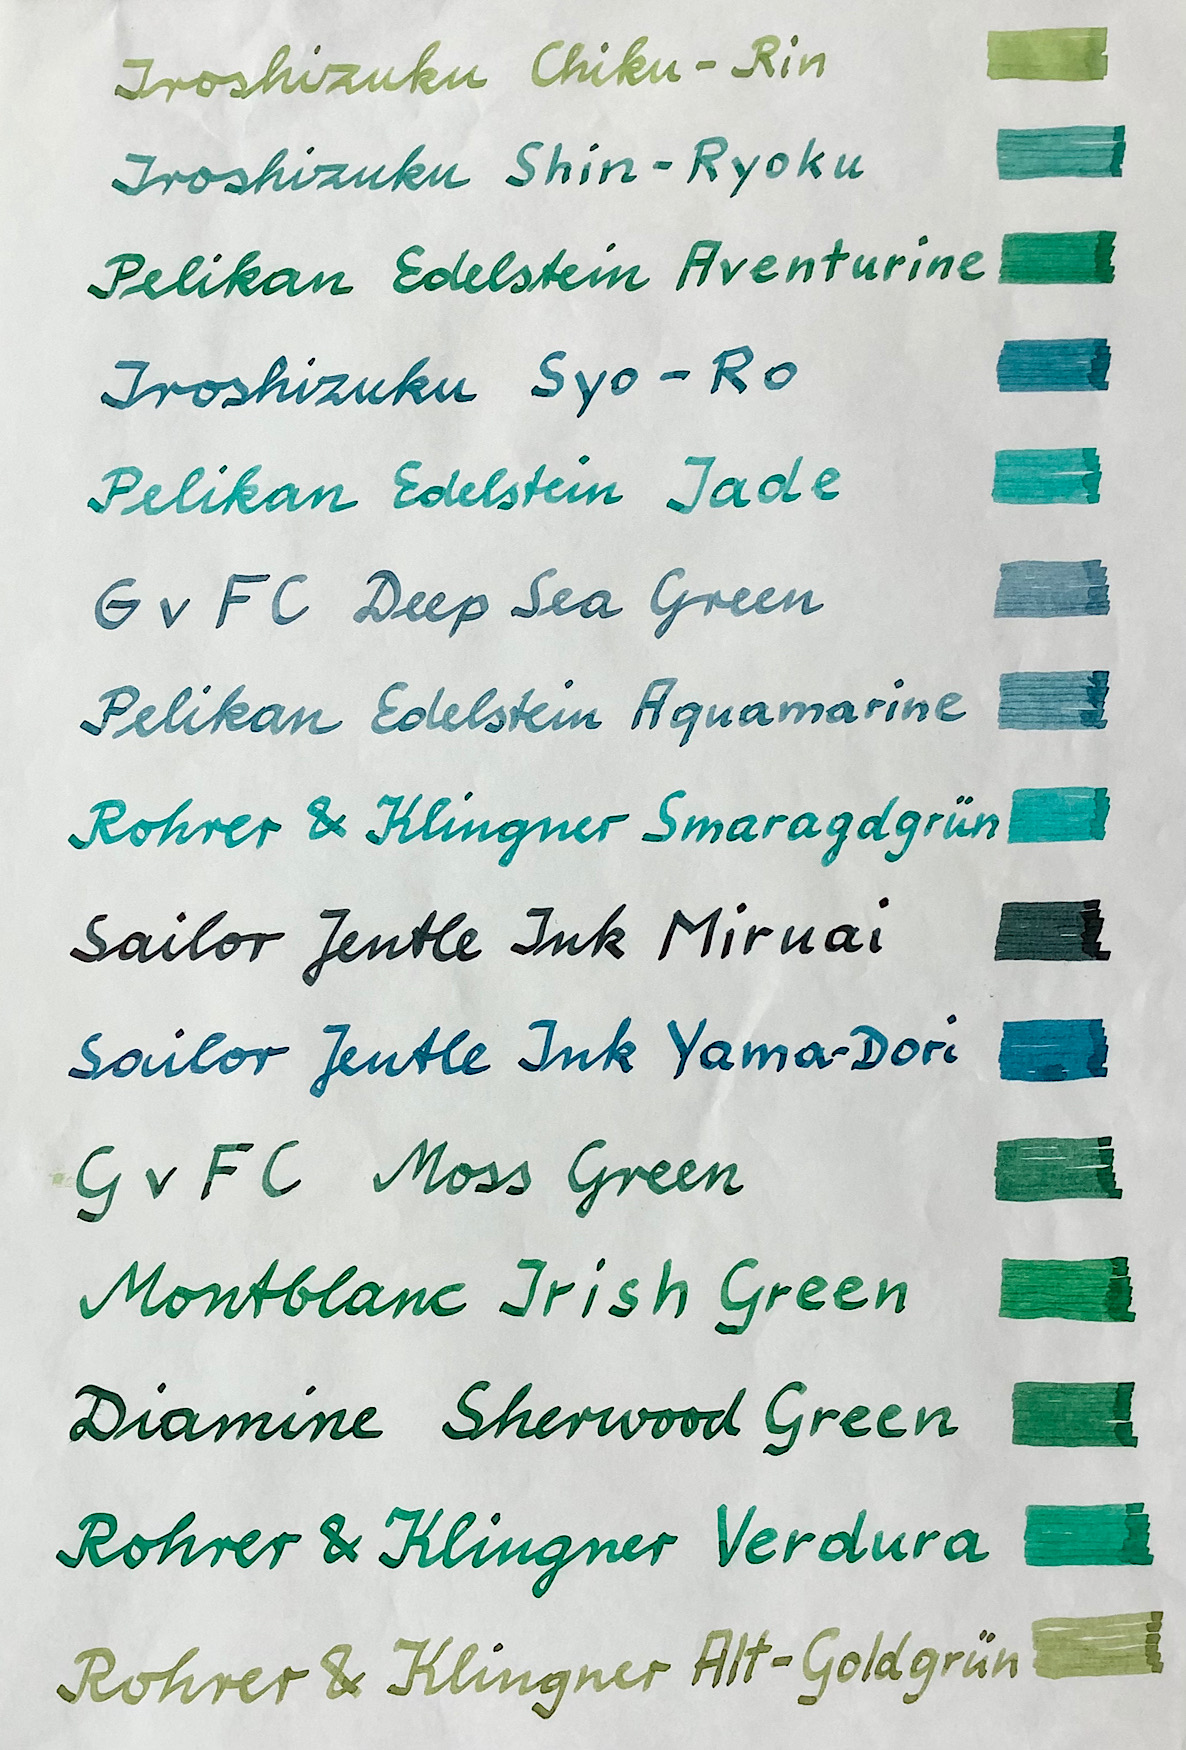 Iroshizuku Chiku-Rin
Iroshizuku Shin-Ryoku
Pelikan Edelstein Aventurine
Iroshizuku Syo-Ro
Pelikan Edelstein Jade
G v F C Deep Sea Green
Pelikan Edelstein Aquamarine
Rohrer & Klingner Smaragdgrün
Sailor Jentle Ink Miruai
Sailor Jentle Ink Yama-Dori
G v F C Moss Green
Montblanc Irish Green
Diamine Sherwood Green
Rohrer & Klingner Verdura
Rohrer & Klingner Alt-Goldgrün